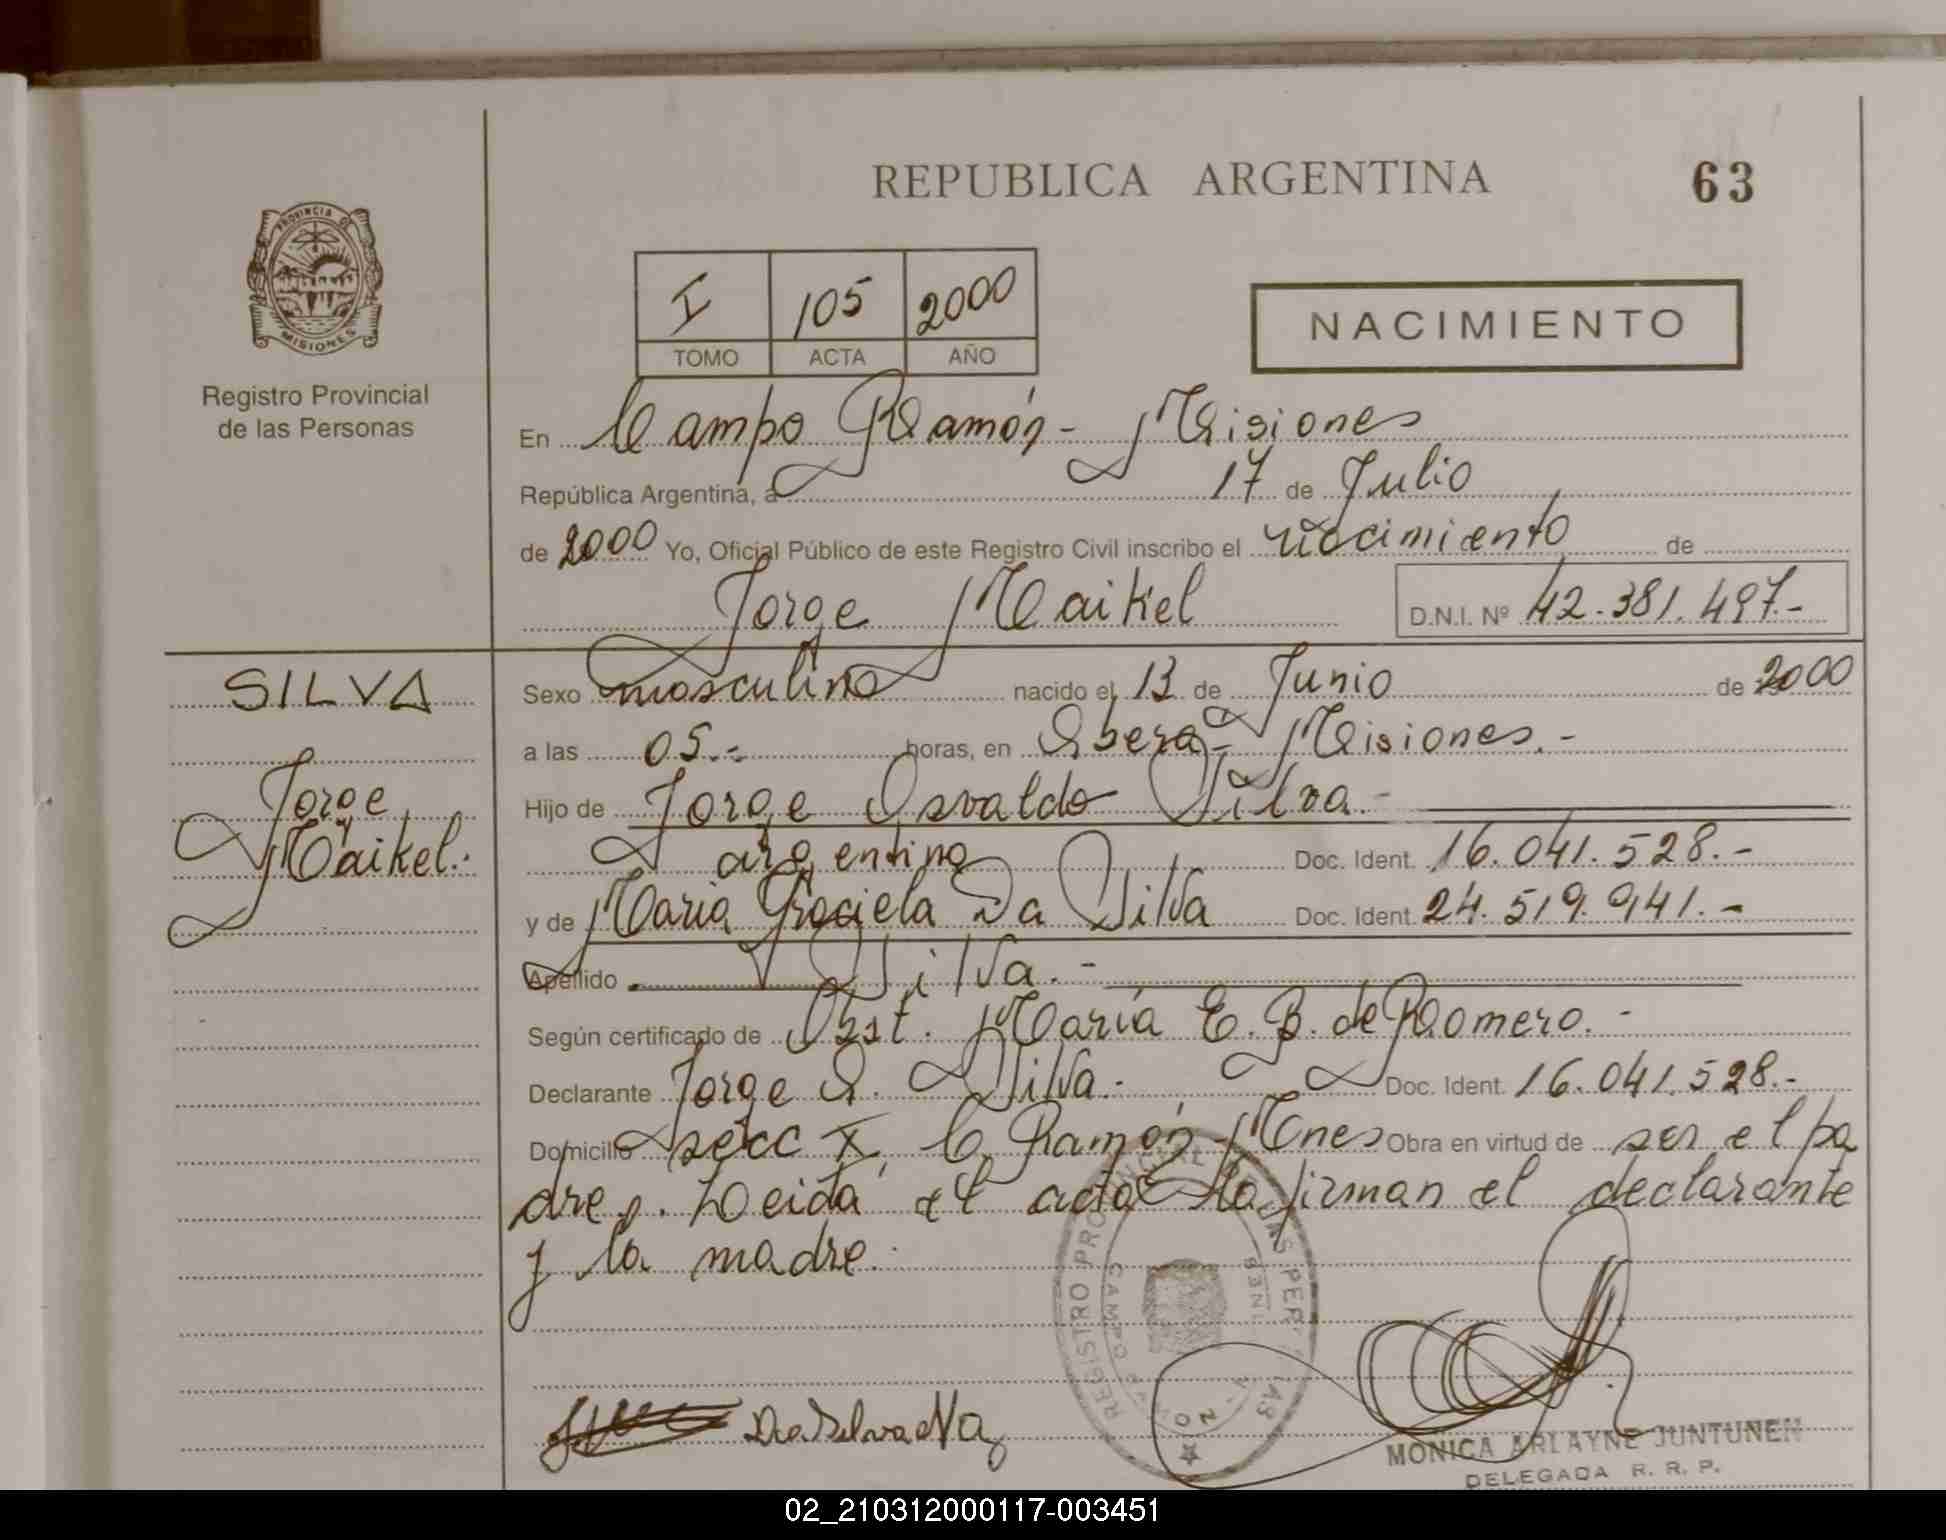 REPUBLICA ARGENTINA 63
PROVINCIA DE
MISIONES
Registro Provincial
de las Personas
I 105 2000
TOMO ACTA AÑO
NACIMIENTO
En Campo Ramón - Misiones
República Argentina, a 17 de Julio
de 2000 Yo, Oficial Público de este Registro Civil inscribo el nacimiento de
Jorge Maikel D.N.I. Nº 42.381.497.-
SILVA
Jorge
Maikel.-
Sexo masculino nacido el 13 de Junio de 2000
a las 05.- horas, en Oberá - Misiones.-
Hijo de Jorge Osvaldo Silva.-
argentino Doc. Ident. 16.041.528.-
y de María Graciela Da Silva Doc. Ident. 24.519.941.-
Apellido Silva.-
Según certificado de Obst. María E. B. de Romero.-
Declarante Jorge O. Silva.- Doc. Ident. 16.041.528.-
Domicilio secc X C. Ramón - Mnes Obra en virtud de ser el pa
dre. Leida el acta la firman el declarante
y la madre.
REGISTRO PROVINCIAL DE LAS PERSONAS
CAMPO RAMON
MONICA ARLAYNE JUNTUNEN
DELEGADA R. R. P.
02_210312000117-003451